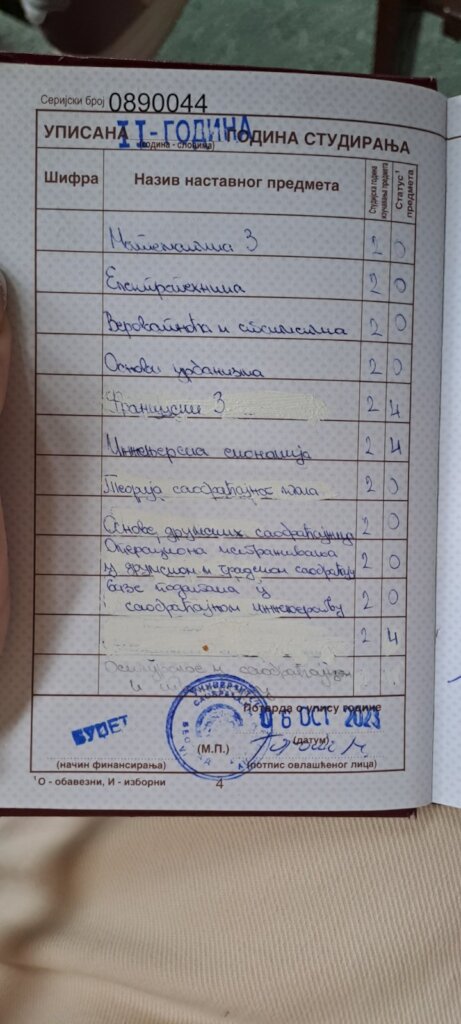 Серијски број 0890044
УПИСАНА II-ГОДИНА ГОДИНА СТУДИРАЊА
(година - словима)
Шифра Назив наставног предмета Студијска година изучавања предмета Статус¹ предмета
Математика 3 2 О
Електротехника 2 О
Вероватноћа и статистика 2 О
Основи урбанизма 2 О
Француски 3 2 И
Инжењерска економија 2 И
Теорија саобраћајног тока 2 О
Основе друмских саобраћајница
Операциона истраживања 2 О
у друмском и градском саобраћају
Базе података у 2 О
саобраћајном инжењерству
2 И
и саобраћајној
Потврда о упису године
БУЏЕТ 06 ОСТ 2023
(М.П.) (датум)
(начин финансирања) (потпис овлашћеног лица)
¹О - обавезни, И - изборни
4